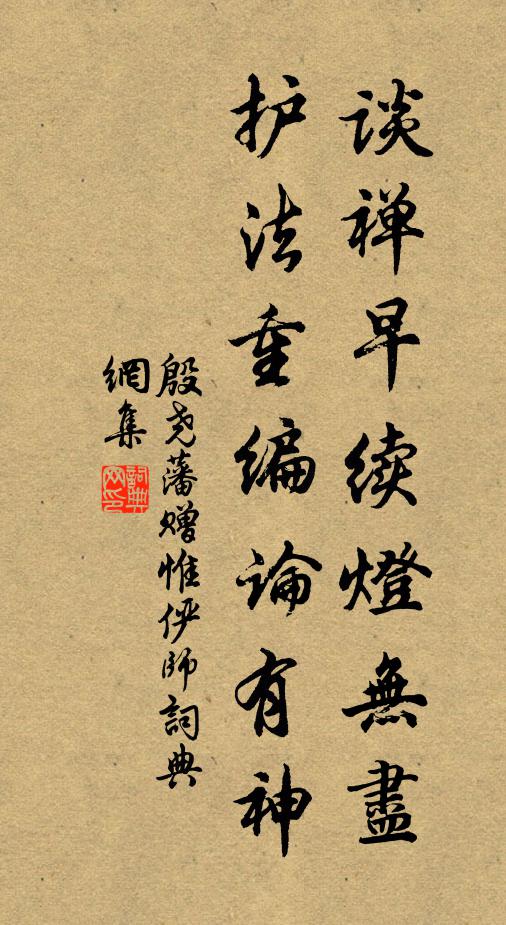 谈禅早续燈無盡
护法重编论有神
殷尧藩赠惟俨師詞典
網集
詞典
网印